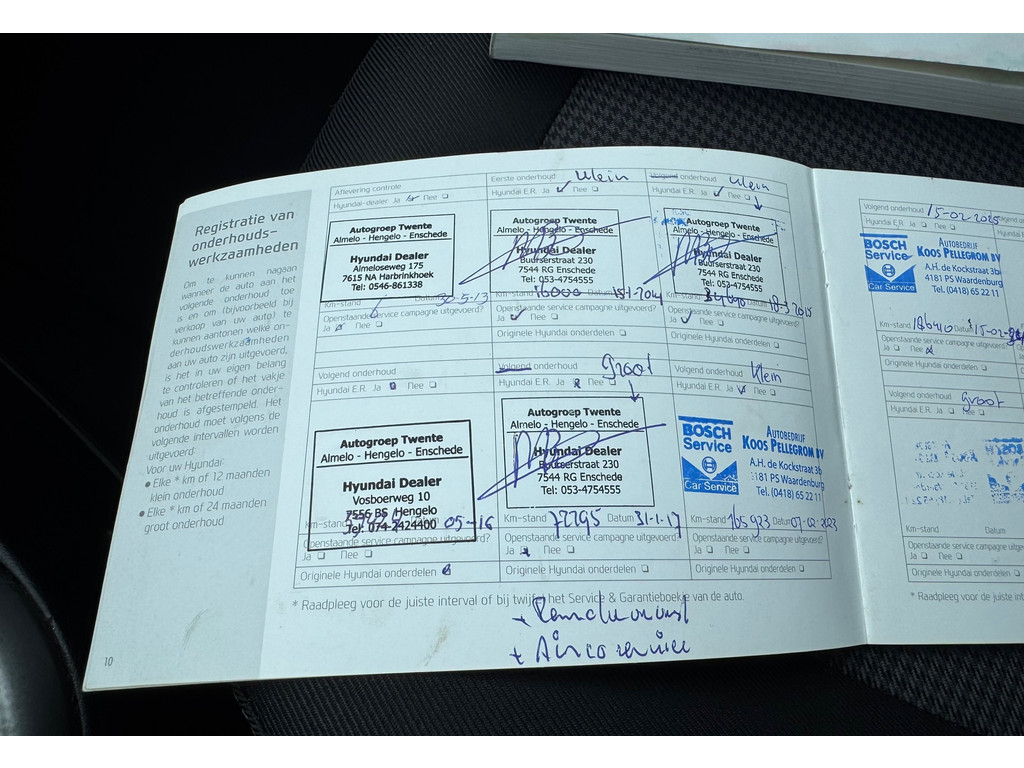 Registratie van
onderhouds-
werkzaamheden
Om te kunnen nagaan
wanneer de auto aan het
volgende onderhoud toe
is en om (bijvoorbeeld bij
verkoop van uw auto) te
kunnen aantonen welke on-
derhoudswerkzaamheden
aan uw auto zijn uitgevoerd,
is het in uw eigen belang
te controleren of het vakje
van het betreffende onder-
houd is afgestempeld. Het
onderhoud moet volgens de
volgende intervallen worden
uitgevoerd:
Voor uw Hyundai:
• Elke * km of 12 maanden
klein onderhoud
• Elke * km of 24 maanden
groot onderhoud
10
Aflevering controle
Hyundai-dealer Ja Nee
Autogroep Twente
Almelo - Hengelo - Enschede
Hyundai Dealer
Almeloseweg 175
7615 NA Harbrinkhoek
Tel: 0546-861338
Km-stand 6 Datum 30-5-13
Openstaande service campagne uitgevoerd?
Ja Nee
Eerste onderhoud Klein
Hyundai E.R. Ja Nee
Autogroep Twente
Almelo - Hengelo - Enschede
Hyundai Dealer
Buurserstraat 230
7544 RG Enschede
Tel: 053-4754555
Km-stand 16000 Datum
Openstaande service campagne uitgevoerd?
Ja Nee
Originele Hyundai onderdelen
Volgend onderhoud Klein
Hyundai E.R. Ja Nee
Autogroep Twente
Almelo - Hengelo - Enschede
Hyundai Dealer
Buurserstraat 230
7544 RG Enschede
Tel: 053-4754555
Km-stand Datum 18-3-2015
Openstaande service campagne uitgevoerd?
Ja Nee
Originele Hyundai onderdelen
Volgend onderhoud
Hyundai E.R. Ja Nee
Autogroep Twente
Almelo - Hengelo - Enschede
Hyundai Dealer
Vosboerweg 10
7556 BS Hengelo
Tel: 074-2424400
Km-stand 05-16
Openstaande service campagne uitgevoerd?
Ja Nee
Originele Hyundai onderdelen
Volgend onderhoud Groot
Hyundai E.R. Ja Nee
Autogroep Twente
Almelo - Hengelo - Enschede
Hyundai Dealer
Buurserstraat 230
7544 RG Enschede
Tel: 053-4754555
Km-stand 72295 Datum 31-1-17
Openstaande service campagne uitgevoerd?
Ja Nee
Originele Hyundai onderdelen
Volgend onderhoud Klein
Hyundai E.R. Ja Nee
BOSCH
Service
Car Service
AUTOBEDRIJF
KOOS PELLEGROM BV
A.H. de Kockstraat 3b
4181 PS Waardenburg
Tel. (0418) 65 22 11
Km-stand 165923 Datum 07-02-2023
Openstaande service campagne uitgevoerd?
Ja Nee
Originele Hyundai onderdelen
* Raadpleeg voor de juiste interval of bij twijfel het Service & Garantieboekje van de auto.
+ Remvloeistof
+ Airco service
Volgend onderhoud 15-02-2025
Hyundai E.R. Ja Nee
BOSCH
Service
Car Service
AUTOBEDRIJF
KOOS PELLEGROM BV
A.H. de Kockstraat 3b
4181 PS Waardenburg
Tel. (0418) 65 22 11
Km-stand 186410 Datum 15-02-
Openstaande service campagne uitgevoerd?
Ja Nee
Originele Hyundai onderdelen
Volgend onderhoud Groot
Hyundai E.R. Ja Nee
Km-stand Datum
Openstaande service campagne uitgevoerd?
Ja Nee
Originele Hyundai onderdelen
* Raadpleeg voor de juiste